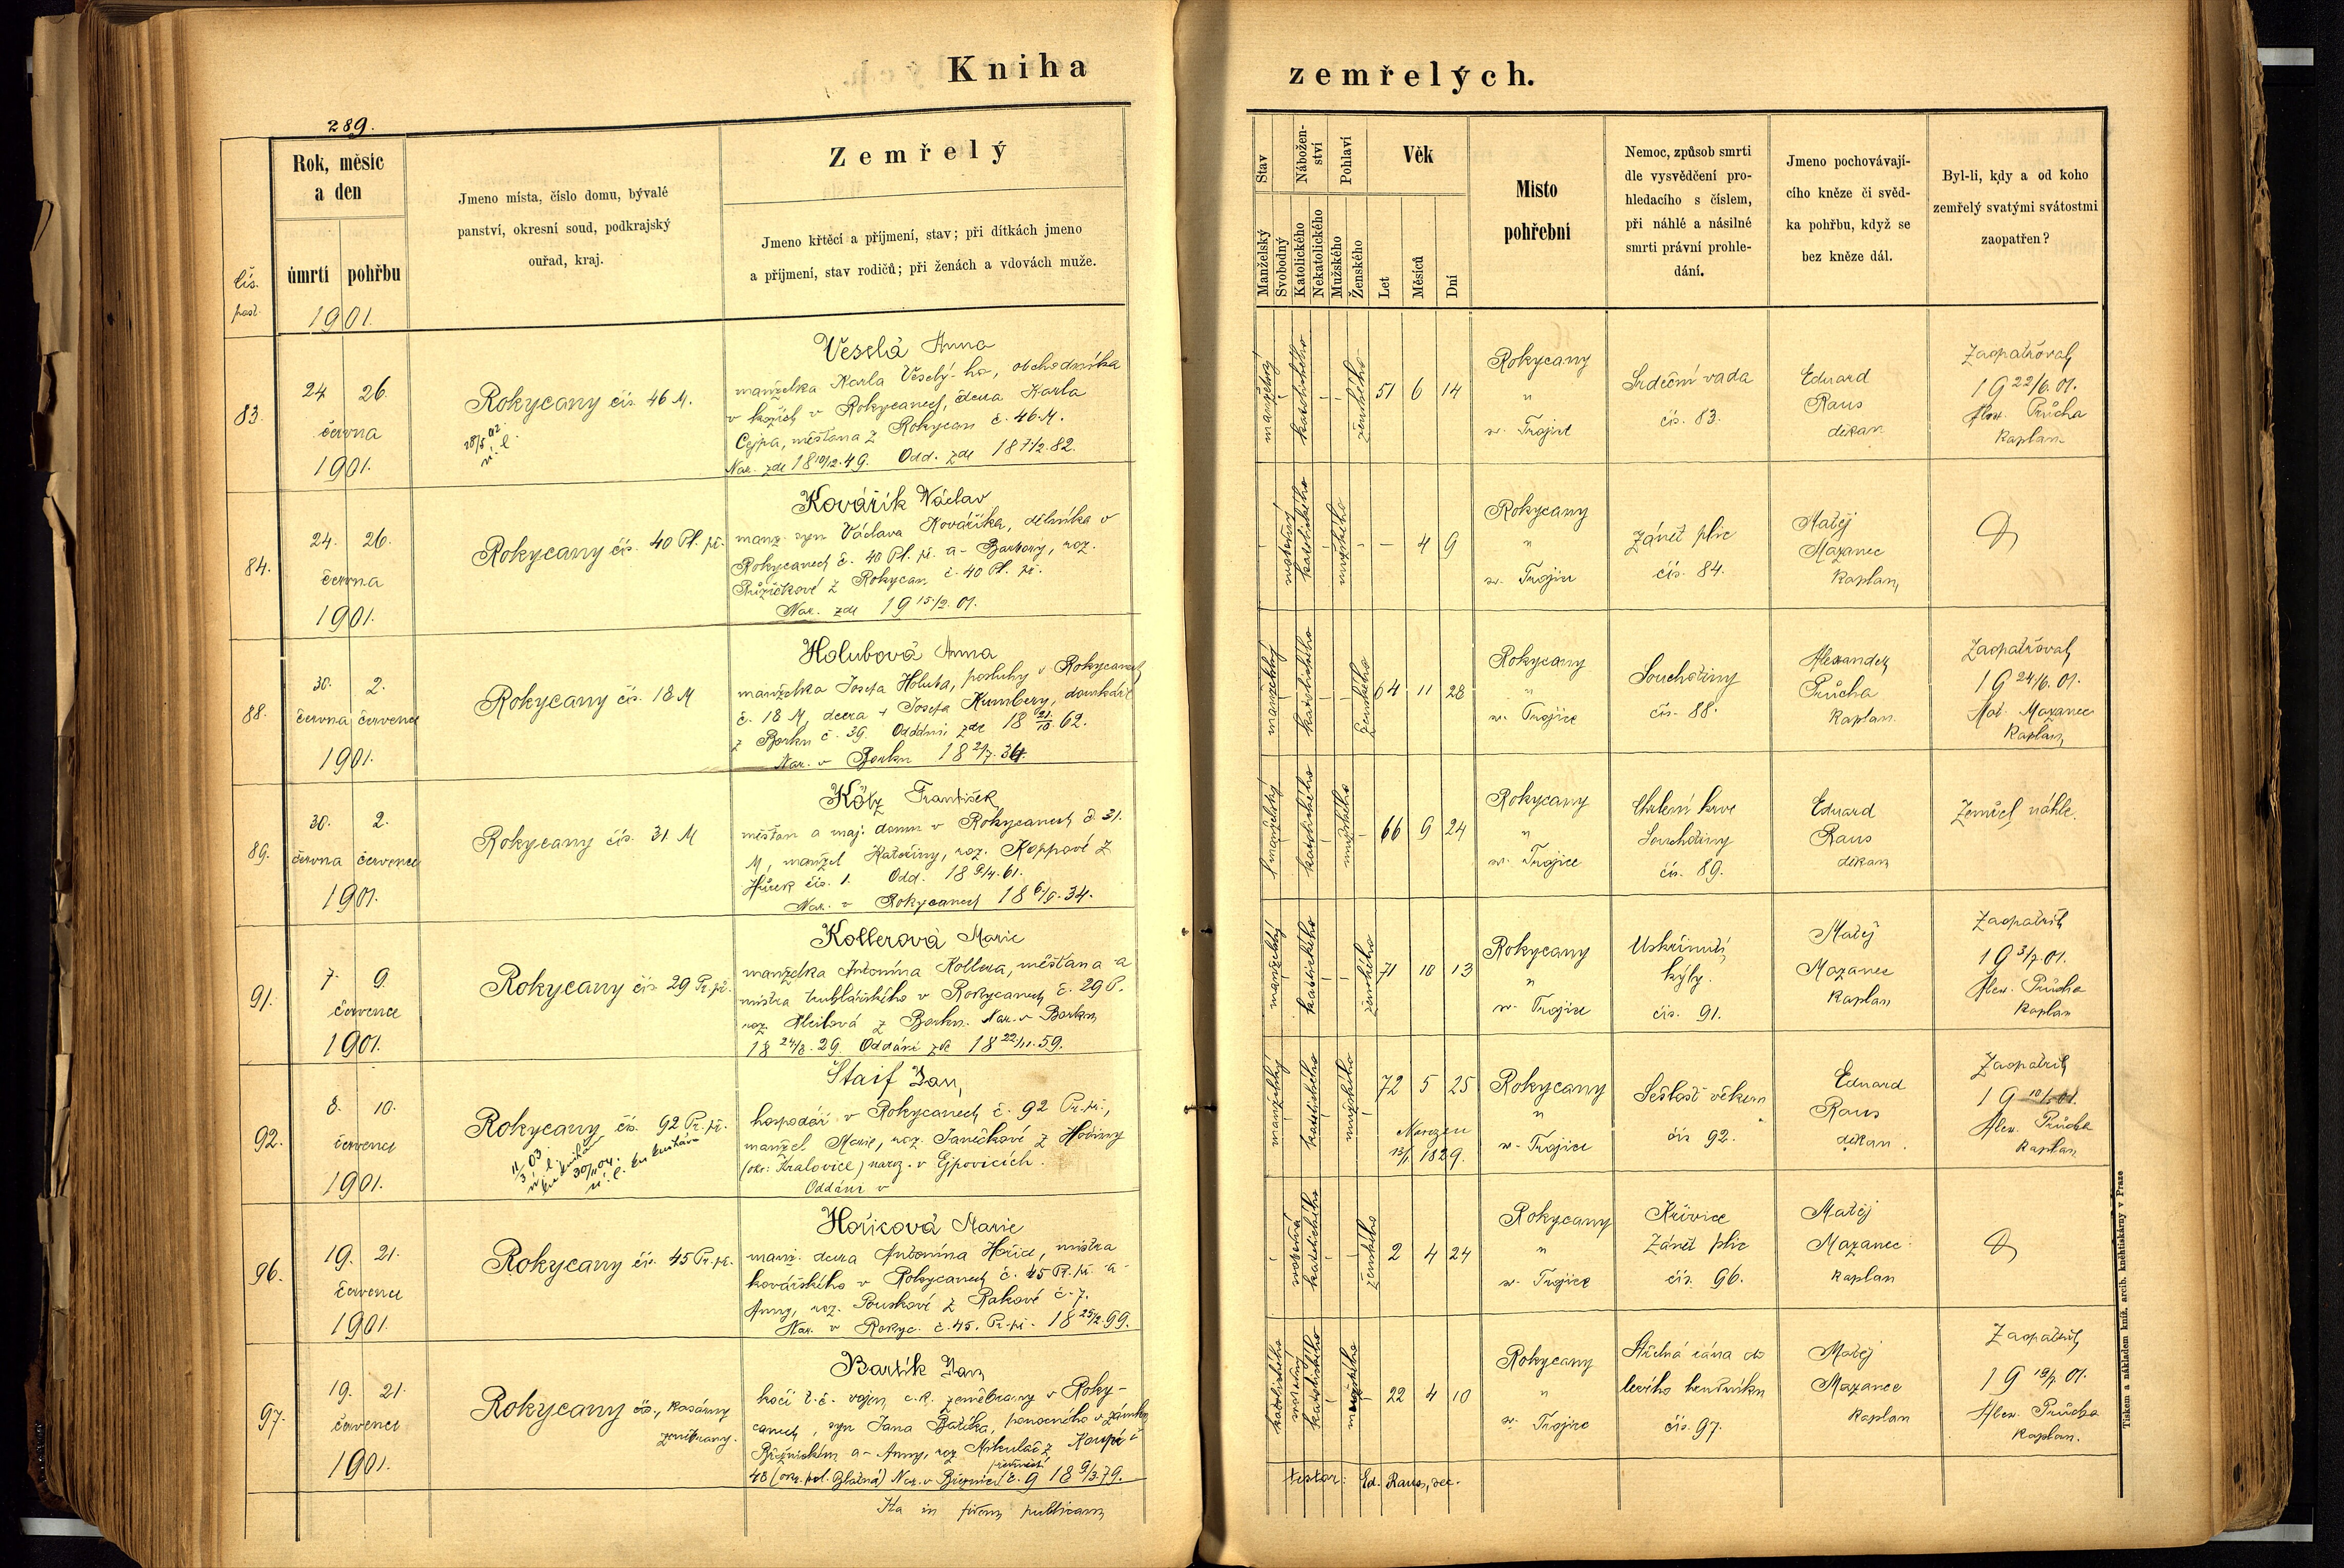 Kniha
zemřelých.
289.
čís.
post.
Rok, měsíc
a den
úmrtí
pohřbu
1901.
Jmeno místa, číslo domu, bývalé
panství, okresní soud, podkrajský
ouřad, kraj.
Zemřelý
Jmeno křtěcí a příjmení, stav; při dítkách jmeno
a příjmení, stav rodičů; při ženách a vdovách muže.
Stav
Manželský
Svobodný
Nábožen-
ství
Katolického
Nekatolického
Pohlaví
Mužského
Ženského
Věk
Let
Měsíců
Dní
Místo
pohřební
Nemoc, způsob smrti
dle vysvědčení pro-
hledacího s číslem,
při náhlé a násilné
smrti právní prohle-
dání.
Jmeno pochovávají-
cího kněze či svěd-
ka pohřbu, když se
bez kněze dál.
Byl-li, kdy a od koho
zemřelý svatými svátostmi
zaopatřen?
83.
24 26.
června
1901.
Rokycany čís. 46 M.
28/5 02.
Veselá Anna
manželka Karla Veselý-ho, obchodníka
v kožích v Rokycanech, dcera Karla
Cejpa, měšťana z Rokycan č. 46 M.
Nar. zde 18 10/12. 49. Odd. zde 18 7/2. 82.
manželský
katolického
ženského
51 6 14
Rokycany
"
sv. Trojice
Srdeční vada
čís. 83.
Eduard
Raus
děkan
Zaopatřoval
19 22/6. 01.
Alex. Průcha
kaplan
84.
24. 26.
června
1901.
Rokycany čís. 40 Pl. př.
Kovářík Václav
manž. syn Václava Kováříka, dělníka v
Rokycanech č. 40 Pl. př. a - Barbory, roz.
Růžičkové z Rokycan č. 40 Pl. př.
Nar. zde 19 15/2. 01.
svobodný
katolického
mužského
- 4 9
Rokycany
"
sv. Trojice
Zánět plic
čís. 84.
Matěj
Mazanec
kaplan
88.
30. 2.
června července
1901.
Rokycany čís. 18 M
Holubová Anna
manželka Josefa Holuba, posluhy v Rokycanech
č. 18 M, dcera + Josefa Kumbery, domkáře
z Borku č. 39. Oddáni zde 18 21/10. 62.
Nar. v Borku 18 2/7. 36.
manželský
katolického
ženského
64 11 28
Rokycany
"
sv. Trojice
Souchotiny
čís. 88.
Alexander
Průcha
kaplan
Zaopatřoval
19 24/6. 01.
Mat. Mazanec
kaplan
89.
30. 2.
června července
1901.
Rokycany čís. 31 M
Kötz František
měšťan a maj. domu v Rokycanech č. 31.
M, manžel Kateřiny, roz. Koppové z
Hůrek čís. 1. Odd. 18 9/4. 61.
Nar. v Rokycanech 18 6/9. 34.
manželský
katolického
mužského
66 9 24
Rokycany
"
sv. Trojice
Chrlení krve
Souchotiny
čís. 89.
Eduard
Raus
děkan
Zemřel náhle.
91.
7. 9.
července
1901.
Rokycany čís. 29 Pr. př.
Kollerová Marie
manželka Antonína Kollera, měšťana a
mistra truhlářského v Rokycanech č. 29 P.
roz. z Borku. Nar. v Borku
18 24/8. 29. Oddáni zde 18 22/11. 59.
manželský
katolického
ženského
71 10 13
Rokycany
"
sv. Trojice
Uskřinutí
kýly.
čís. 91.
Matěj
Mazanec
kaplan
Zaopatřil
19 3/7. 01.
Alex. Průcha
kaplan
92.
8. 10.
července
1901.
Rokycany čís. 92 Pr. př.
Štaif Jan,
hospodář v Rokycanech č. 92 Pr. př.,
manžel Marie, roz. Janečkové z Hodiny
(okr: Kralovice) naroz. v Ejpovicích.
Oddáni v
manželský
katolického
mužského
72 5 25
Narozen
13/1 1829.
Rokycany
"
sv. Trojice
Sešlost věkem
čís. 92.
Eduard
Raus
děkan
Zaopatřil
Alex. Průcha
kaplan
96.
19. 21.
července
1901.
Rokycany čís. 45 Pr. př.
Hořicová Marie
manž. dcera Antonína Hořice, mistra
kovářského v Rokycanech č. 45 Pr. př. a -
Anny, roz. Pouskové z Rakové č. 7.
Nar. v Rokyc. č. 45. Pr. př. 18 25/2. 99.
svobodná
katolického
ženského
2 4 24
Rokycany
"
sv. Trojice
Křivice
Zánět plic
čís. 96.
Matěj
Mazanec
kaplan
97.
19. 21.
července
1901.
Rokycany čís., kasárny
zeměbrany.
Bartík Jan
kočí t. č. vojín c. k. zeměbrany v Roky-
canech, syn Jana Bartíka, pomocného v zámku
Březnickém a - Anny, roz. Mikuláš z
48 (okr. pol. Blatná) Nar. v Březnici č. 9 18 9/3. 79.
svobodný
katolického
mužského
22 4 10
Rokycany
"
sv. Trojice
Střelná rána do
levého
čís. 97.
Matěj
Mazanec
kaplan
Zaopatřil
19 19/7. 01.
Alex. Průcha
kaplan.
Ita in fidem publicam
testor: Ed. Raus, dec.
Tiskem a nákladem kníž. arcib. knihtiskárny v Praze